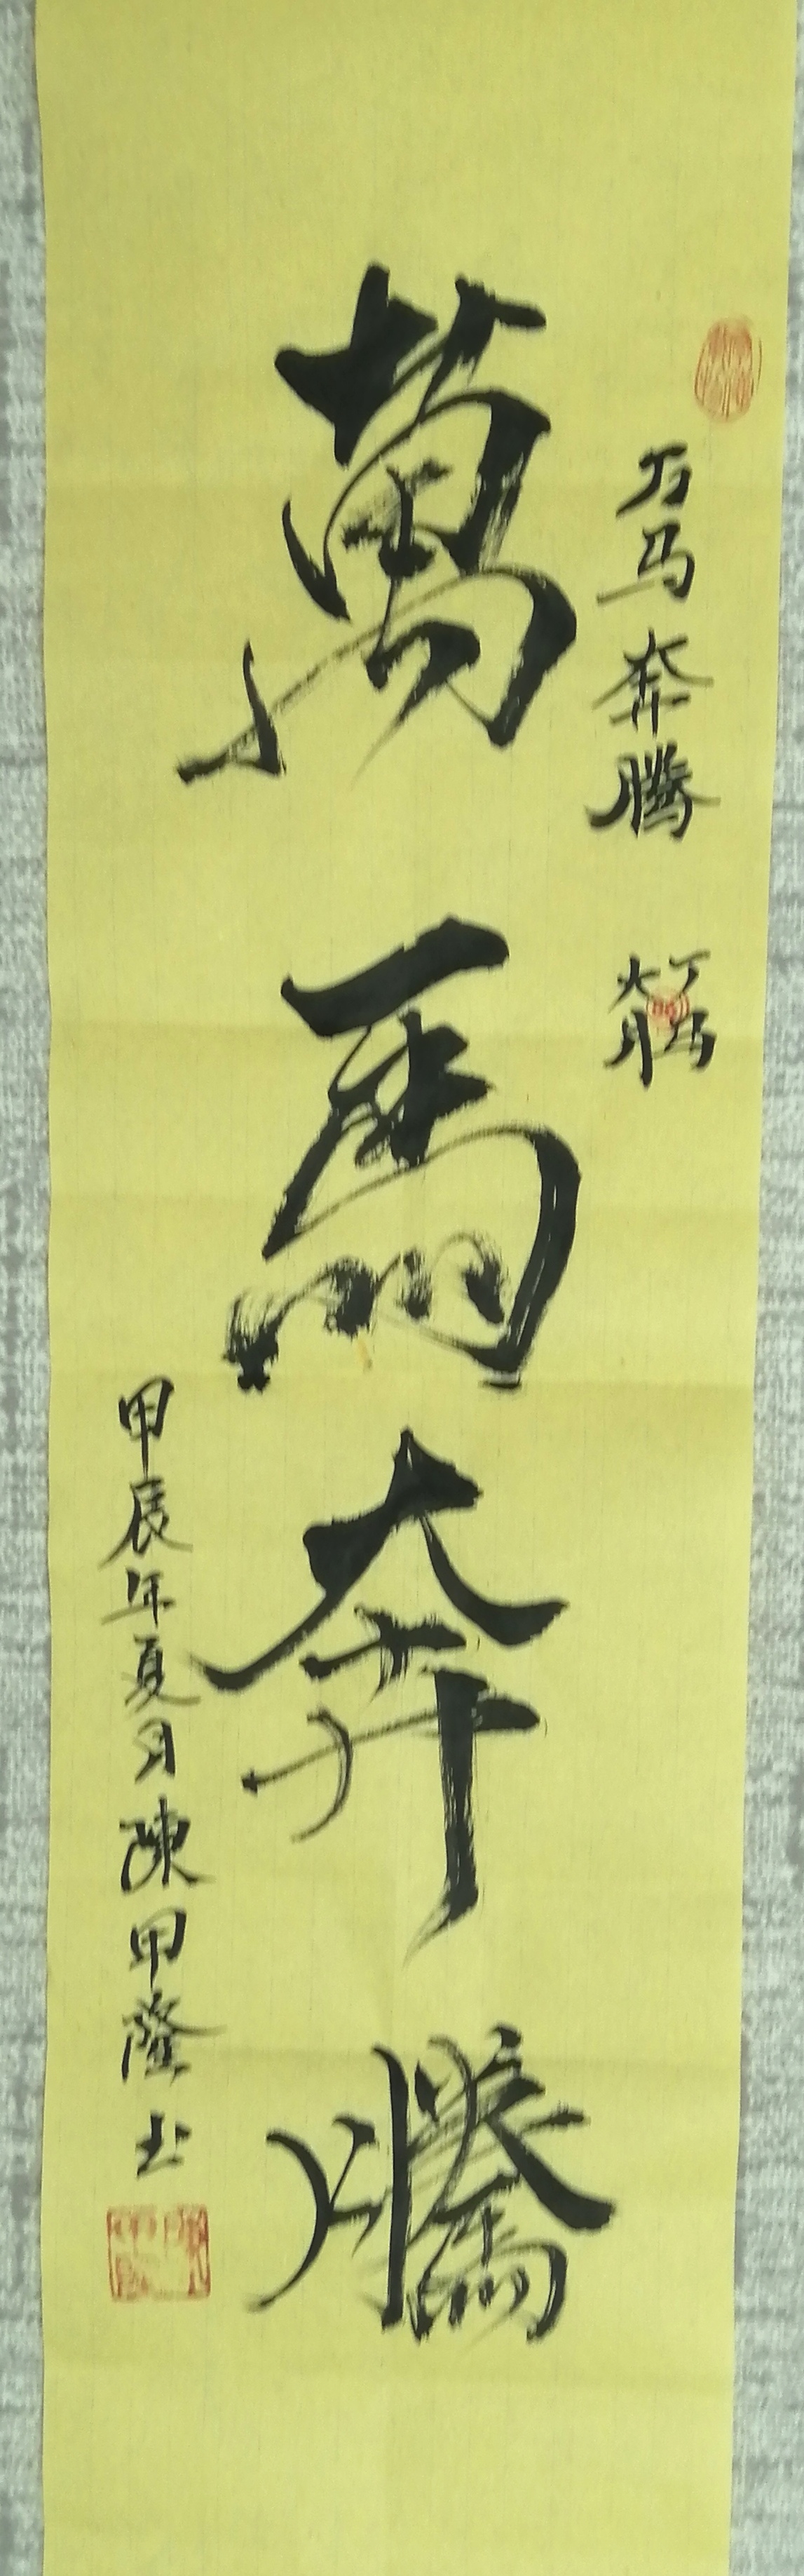 万马奔腾
萬馬奔騰
甲辰年夏月陳甲隆书